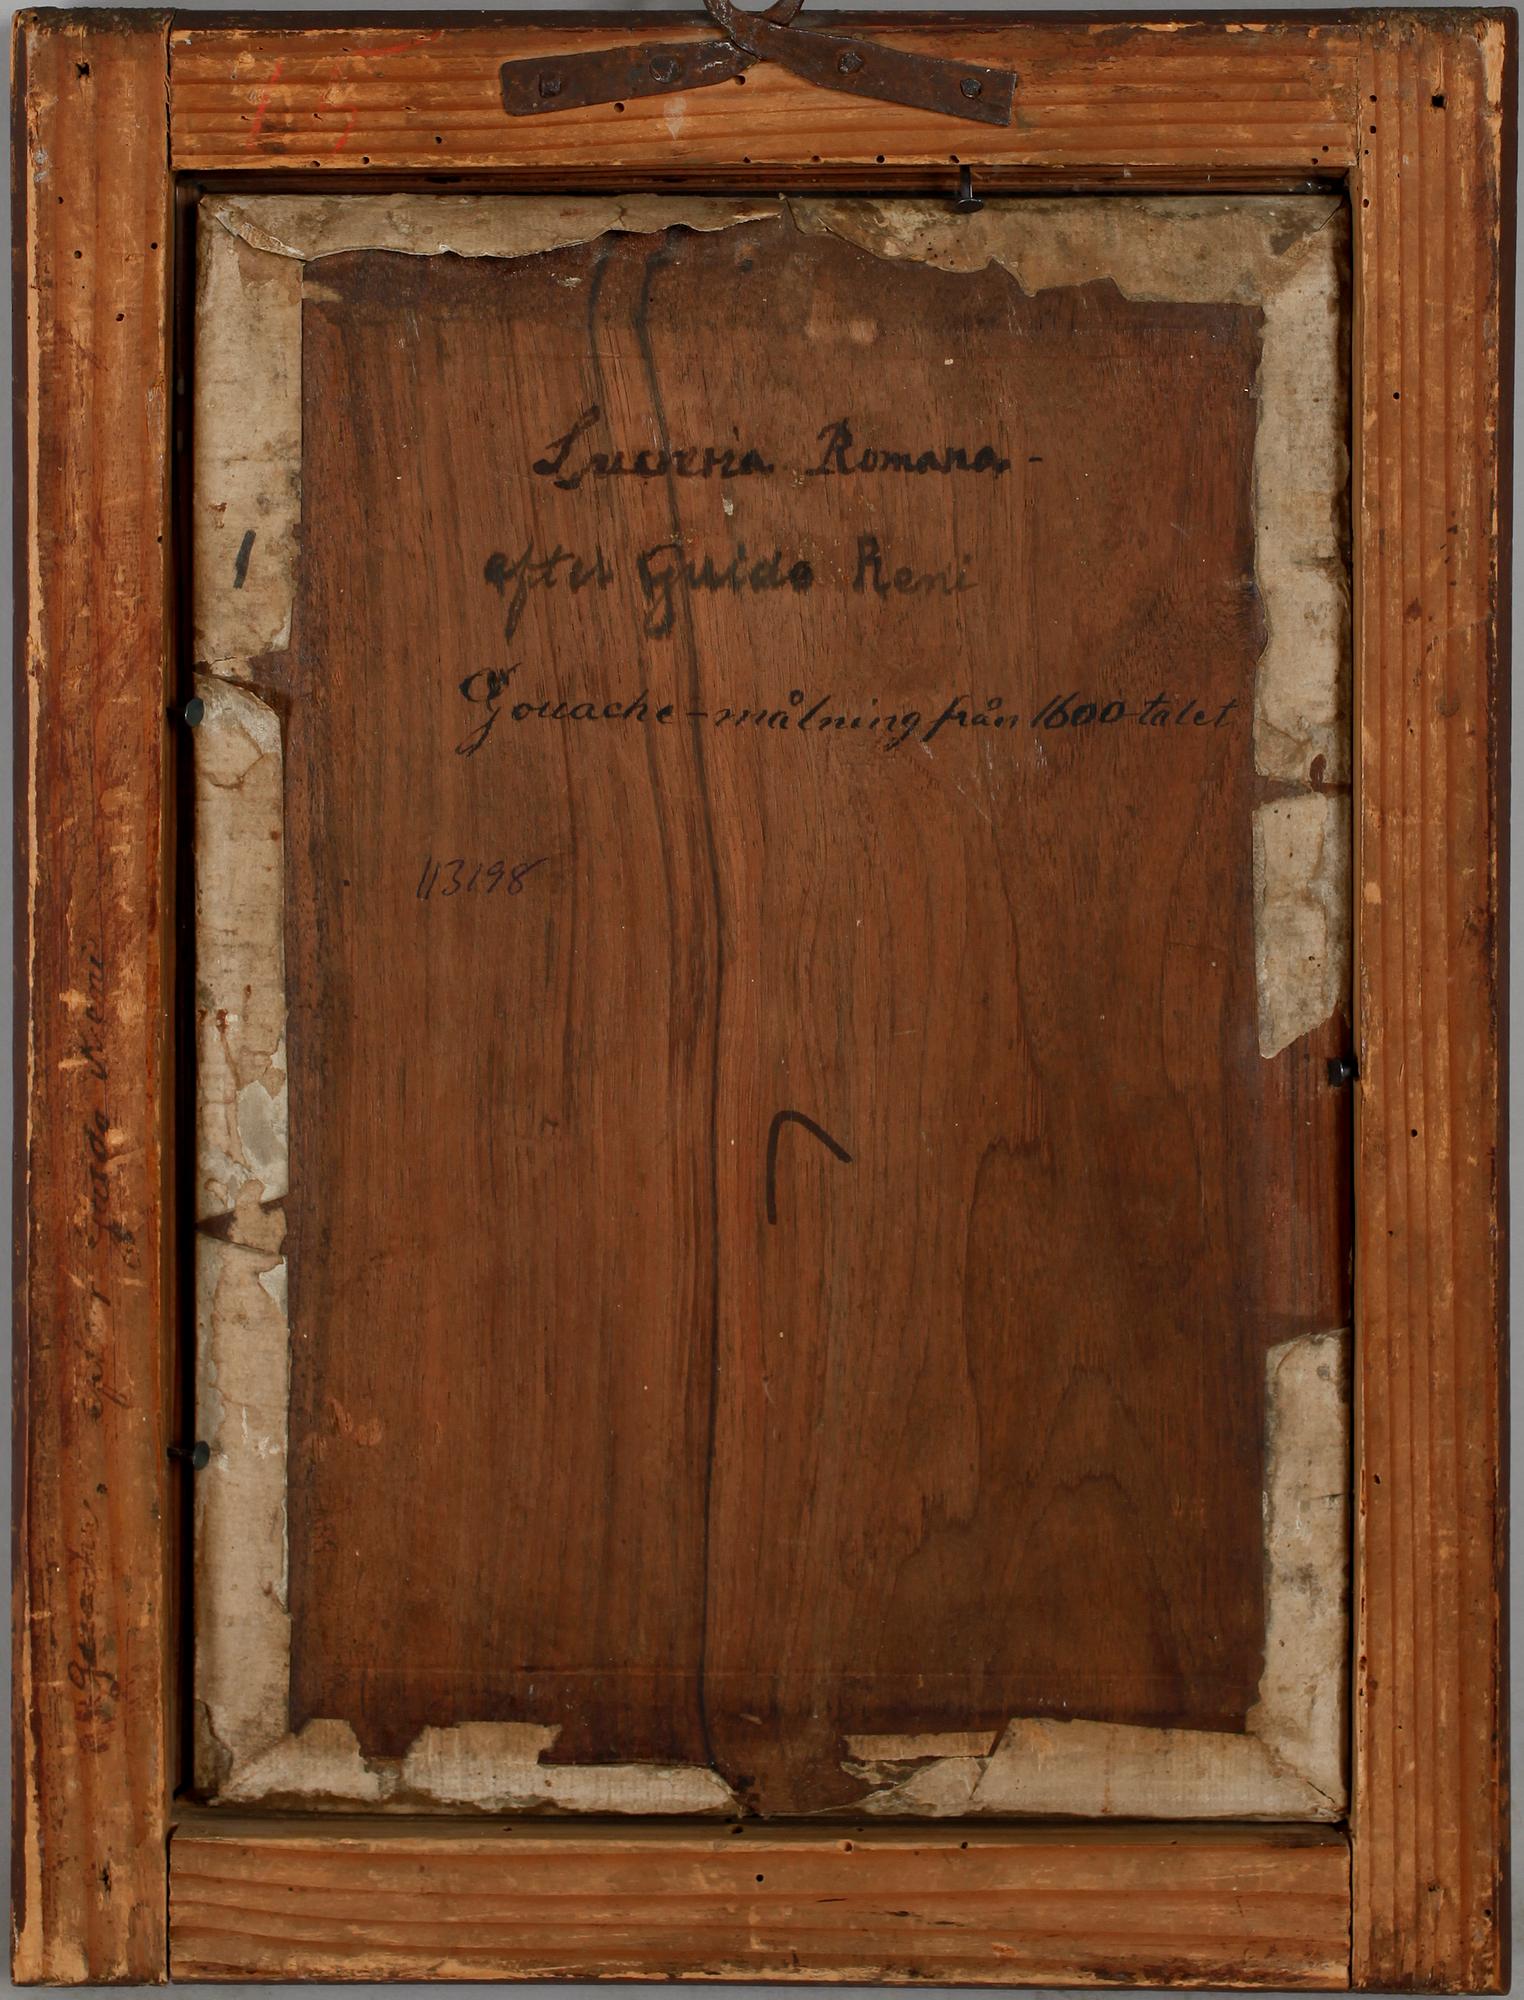 Lucrezia Romana -
efter Guido Reni
Gouache-målning från 1600-talet
113198
1
Gouache. efter Guido Reni